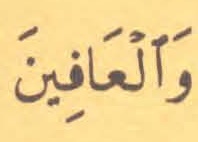 وَٱلْعَافِينَ